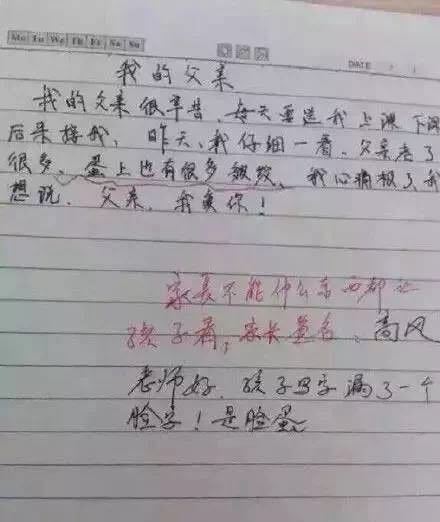 Mo Tu We Th Fr Sa Su
DATE
我的父亲
我的父亲很辛苦，每天要送我上课，下课
后来接我，昨天，我仔细一看，父亲老了
很多，蛋上也有很多皱纹，我心痛极了，我
想说，父亲，我爱你！
家长不能什么东西都让
孩子看，家长签名：高风
老师好，孩子写字漏了一个
脸字！是脸蛋